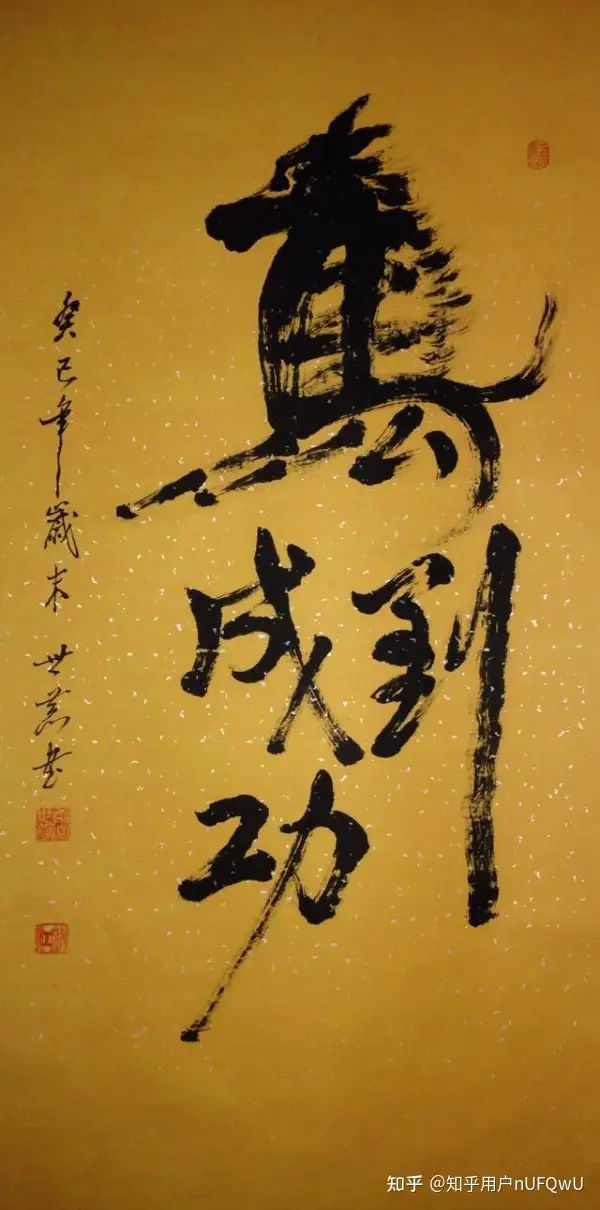 馬到
成功
癸巳年歲末 世 書
知乎 @知乎用户nUFQwU